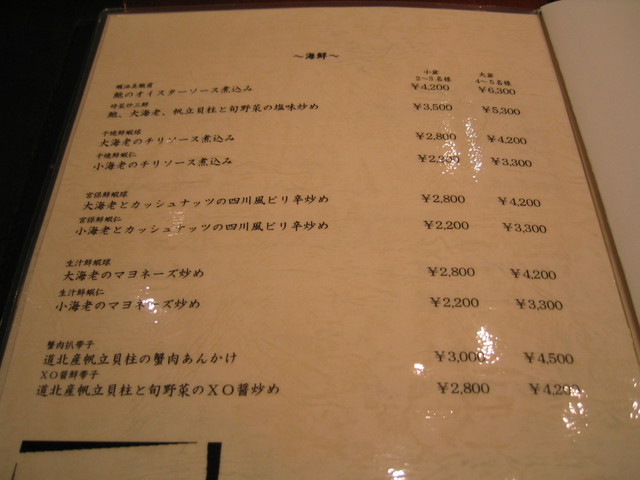 ～海鮮～
小盆 大盆
2～3名様 4～5名様
蠔油原鮑甫
鮑のオイスターソース煮込み ￥4,200 ￥6,300
時菜炒三鮮
鮑、大海老、帆立貝柱と旬野菜の塩味炒め ￥3,500 ￥5,300
干焼鮮蝦球
大海老のチリソース煮込み ￥2,800 ￥4,200
干焼鮮蝦仁
小海老のチリソース煮込み ￥3,300
宮保鮮蝦球
大海老とカッシュナッツの四川風ピリ辛炒め ￥2,800 ￥4,200
宮保鮮蝦仁
小海老とカッシュナッツの四川風ピリ辛炒め ￥2,200 ￥3,300
生汁鮮蝦球
大海老のマヨネーズ炒め ￥2,800 ￥4,200
生汁鮮蝦仁
小海老のマヨネーズ炒め ￥2,200 ￥3,300
蟹肉扒帯子
道北産帆立貝柱の蟹肉あんかけ ￥3,000 ￥4,500
ＸＯ醤鮮帯子
道北産帆立貝柱と旬野菜のＸＯ醤炒め ￥2,800 ￥4,200